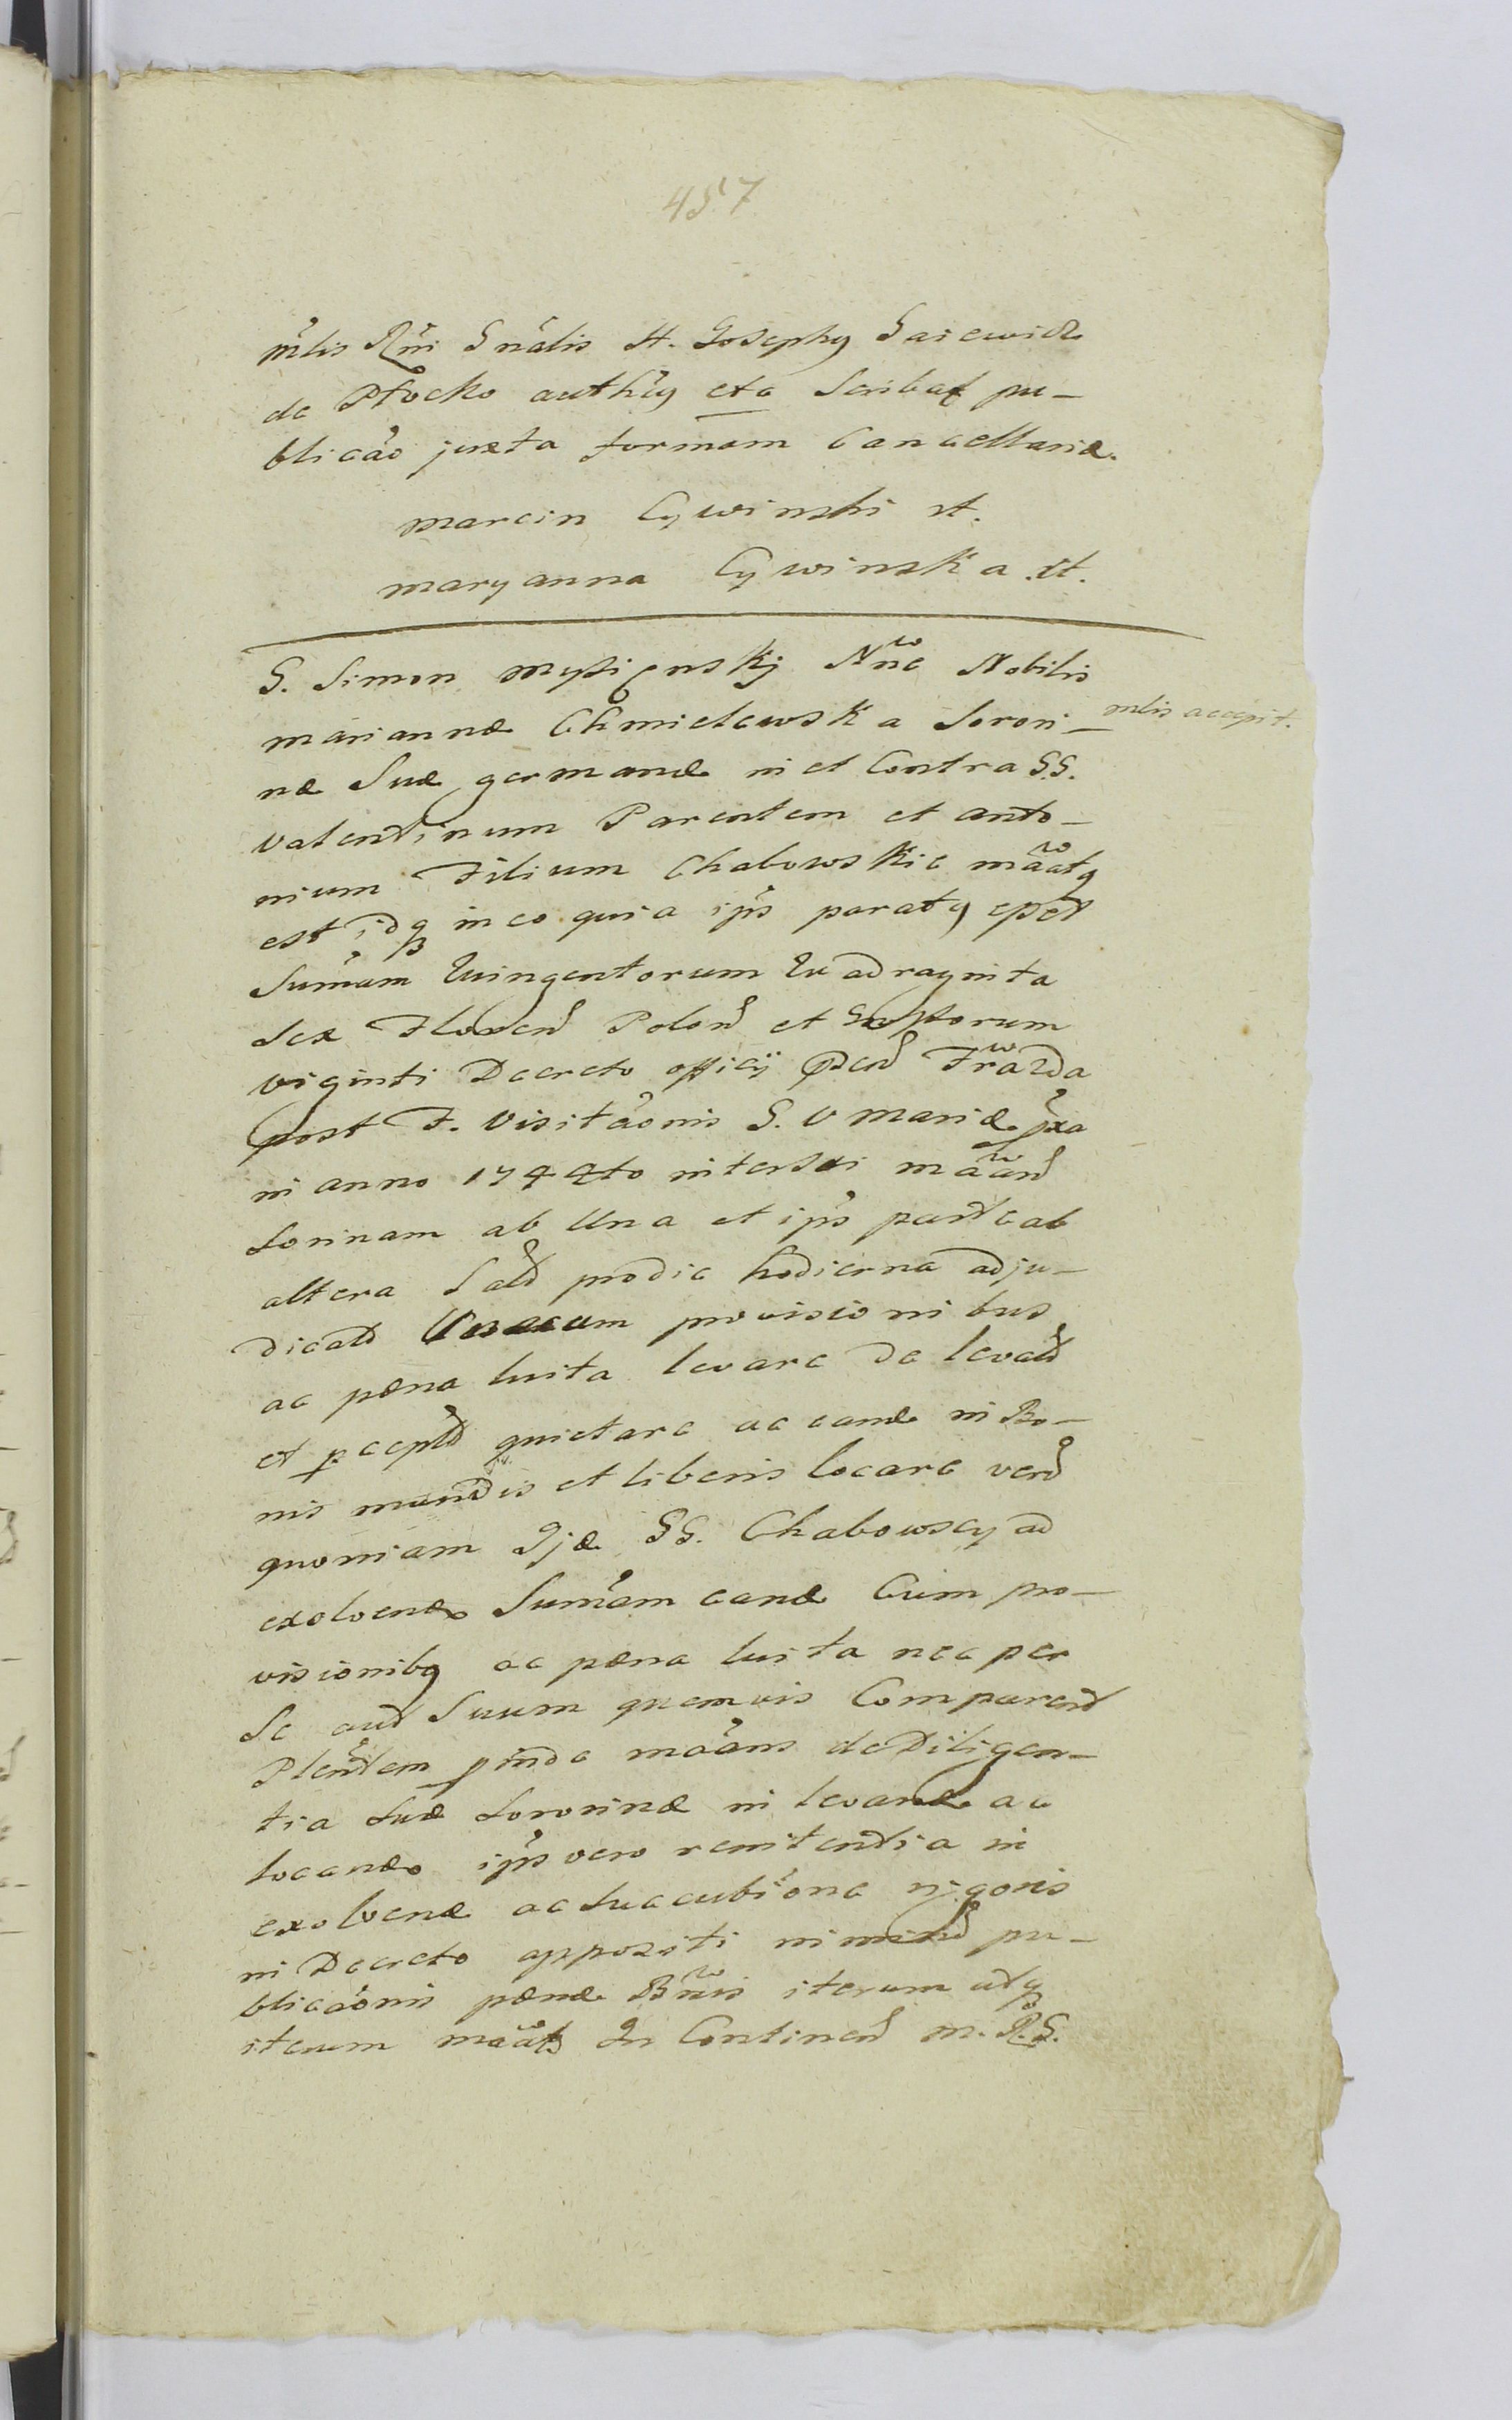 457
mlis Rni Gnalis H. Josephy Gaiewick
de Płocko authry etc Scribat pu-
blicao juxta formam Cancellariæ.
Marcin Cywinski st.
Maryanna Cywinska st.
G. Simon Mysięnskj Nne Nobilis
Mariannæ Chmielewska Sorori-
mlis accepit.
næ Suæ germanæ in et Contra G.G.
Valentinum Parentem et anto-
nium Filium Chabowskie mãatq
est idq in eo quia ips paraty epet
Sumam Quingentorum Quadraginta
Sex Floren Polon et Groptorum
viginti Decreto officij Pen Fra 2da
post F. Visitaonis B. V Mariæ pxa
in anno 1744to inter Sei mãan
Sorinam ab Una et ips parte ab
altera Lat prodie hodierna adju-
dicat Unacum provisionibus
ac pæna luita levare de levat
et pcept quietare ac eand in Bo-
nis mundis et liberis locare ver
quoniam Ijdæ GG. Chabowscy ad
exolvend Sumam eand Cum pro-
visioniby ac pæna luita nec per
Se aut Suum quemvis Comparent
Plentem pinde mãans de Diligen-
tia Suæ Sororinæ in levand ac
locando ips vero renitentia in
exolvend ac Suaeubione rigoris
in Decreto appositi nimin pu-
blicaonis pænæ Bnis iterum atq
iterum mãats In Continen M. R. G.